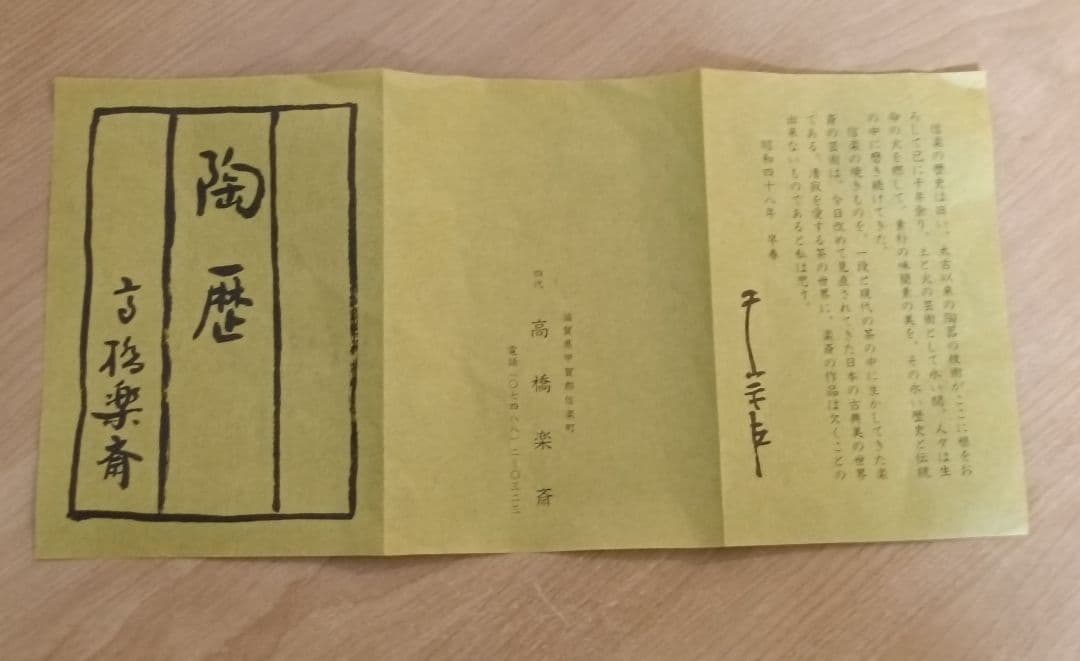 信楽の歴史は旧い。太古以来の陶芸の技術がここに根をお
ろして已に千年余り、土と火の芸術として永い間、人々は生
命の火を燃して、素朴の味簡素の美を、その永い歴史と伝統
の中に磨き続けてきた。
信楽の焼きものを、一段と現代の茶の中に生かしてきた楽
斎の芸術は、今日改めて見直されてきた日本の古典美の世界
である。清寂を愛する茶の世界に、楽斎の作品は欠くことの
出来ないものであると私は思う。
昭和四十八年 早春
滋賀県甲賀郡信楽町
四代 高橋楽斎
電話(〇七四八八)二-〇三二三
陶歴
高橋楽斎